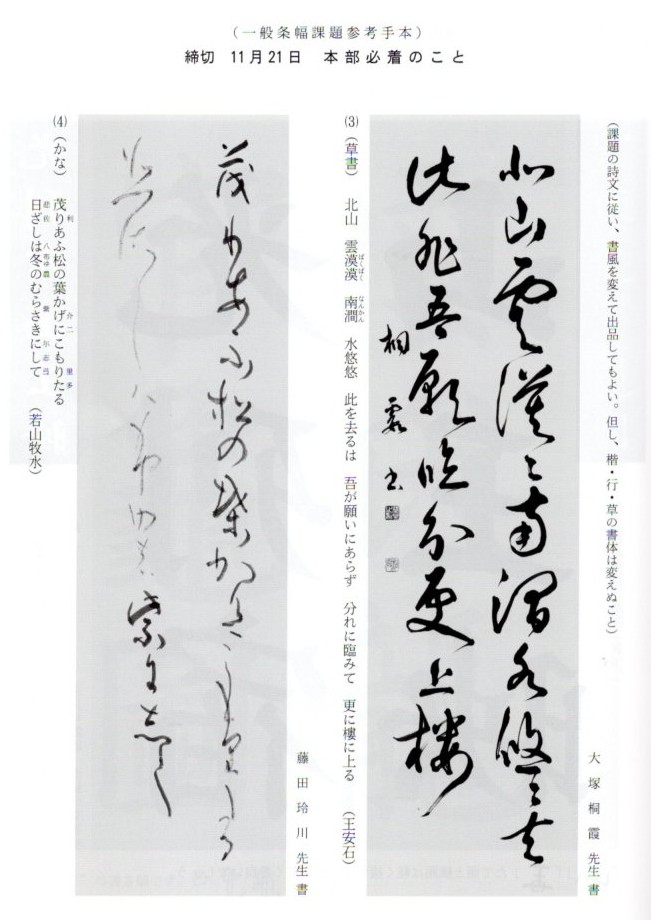 (一般条幅課題参考手本)
締切 11月21日 本部必着のこと
(課題の詩文に従い、書風を変えて出品してもよい。但し、楷・行・草の書体は変えぬこと)
大塚桐霞先生書
北山雲漠〻南澗水悠〻去
此非吾願臨分更上樓
桐霞書
(3) (草書) 北山 雲漠漠 南澗 水悠悠 此を去るは 吾が願いにあらず 分れに臨みて 更に樓に上る (王安石)
ばくばく なんかん
藤田玲川先生書
茂利あふ松の葉か介二こも里多る
(4) (かな) 茂りあふ松の葉かげにこもりたる
利 介二 里多
日ざしは冬のむらさきにして (若山牧水)
悲佐 八布ゆ農 紫